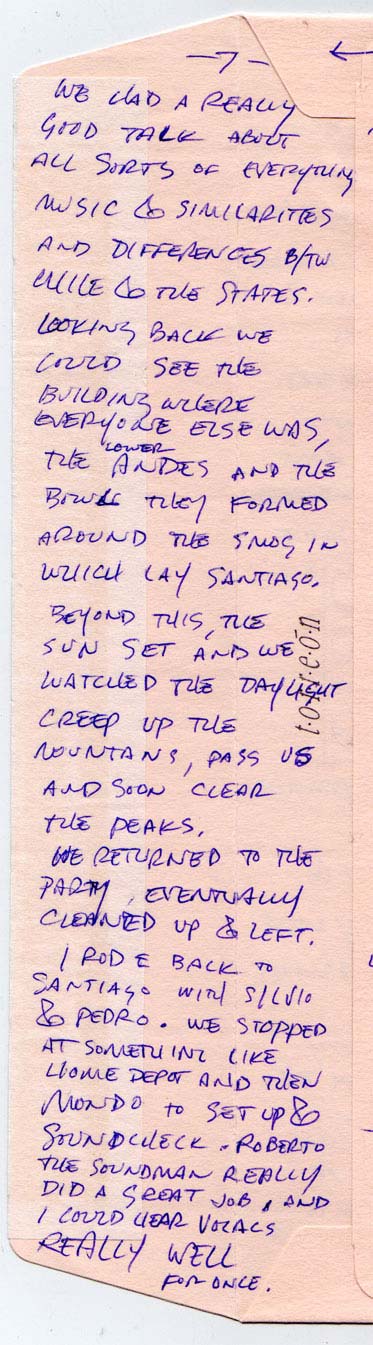 — 7 — ←
WE HAD A REALLY
GOOD TALK ABOUT
ALL SORTS OF EVERYTHING
MUSIC & SIMILARITES
AND DIFFERENCES B/TW
CHILE & THE STATES.
LOOKING BACK WE
COULD SEE THE
BUILDING WHERE
EVERYONE ELSE WAS,
THE LOWER ANDES AND THE
BOWL THEY FORMED
AROUND THE SMOG IN
WHICH LAY SANTIAGO.
BEYOND THIS, THE
SUN SET AND WE
WATCHED THE DAYLIGHT
CREEP UP THE
MOUNTANS, PASS US
AND SOON CLEAR
THE PEAKS.
WE RETURNED TO THE
PARTY, EVENTUALLY
CLEANED UP & LEFT.
I RODE BACK TO
SANTIAGO WITH SILVIO
& PEDRO. WE STOPPED
AT SOMETHING LIKE
HOME DEPOT AND THEN
MONDO TO SET UP &
SOUNDCHECK. ROBERTO
THE SOUNDMAN REALLY
DID A GREAT JOB, AND
I COULD HEAR VOCALS
REALLY WELL
FOR ONCE.